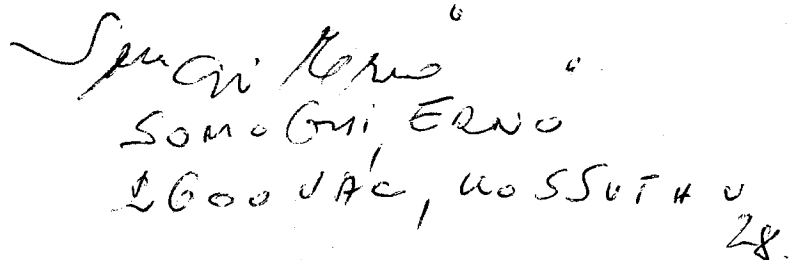 Somogyi Ernő
SOMOGYI ERNŐ
2600 VÁC, KOSSUTH U
28.